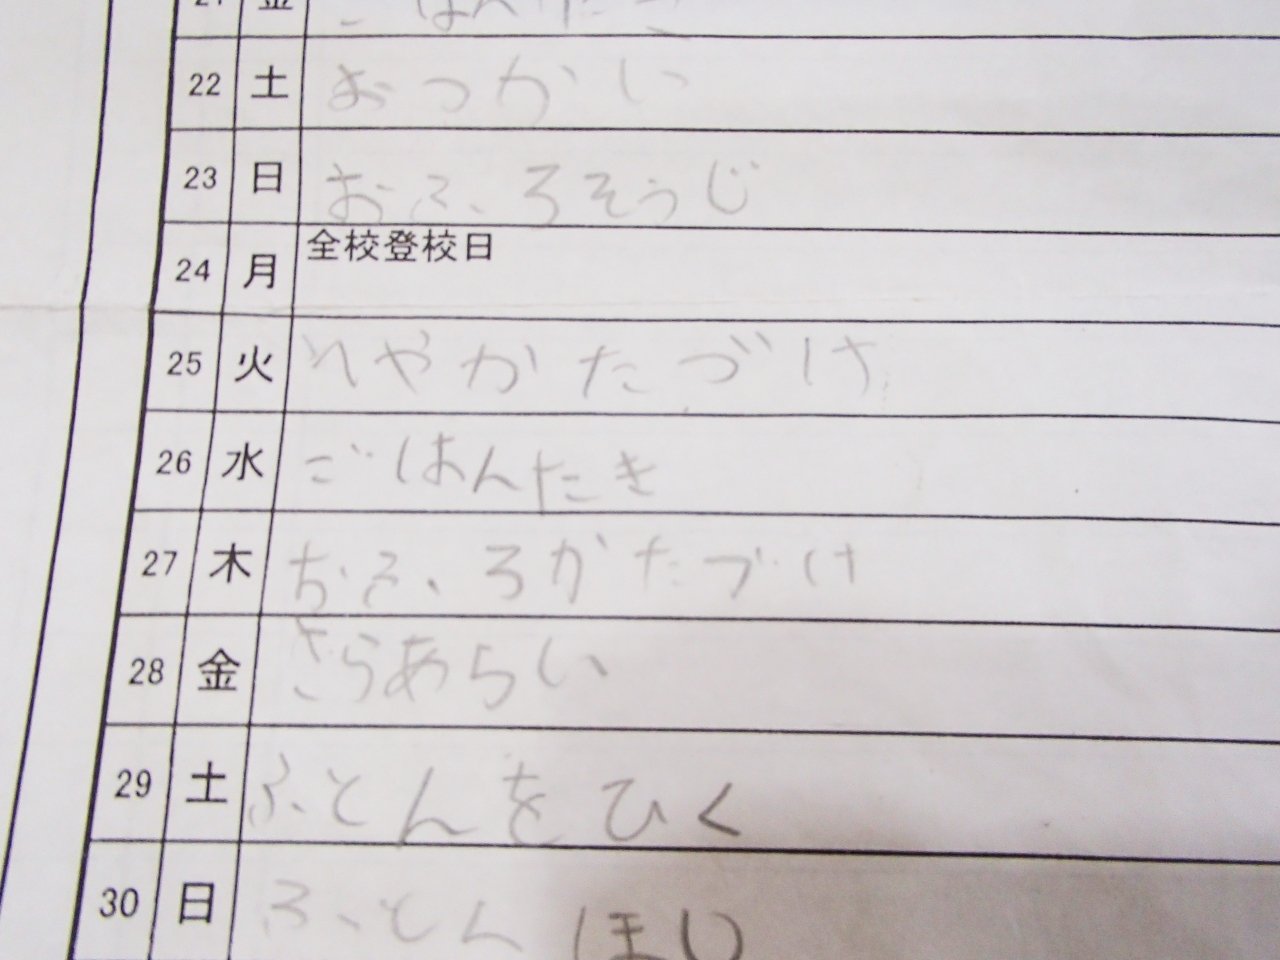 21 金 ごはんたき
22 土 おつかい
23 日 おふろそうじ
24 月 全校登校日
25 火 へやかたづけ
26 水 ごはんたき
27 木 おふろかたづけ
28 金 さらあらい
29 土 ふとんをひく
30 日 ふとんほし